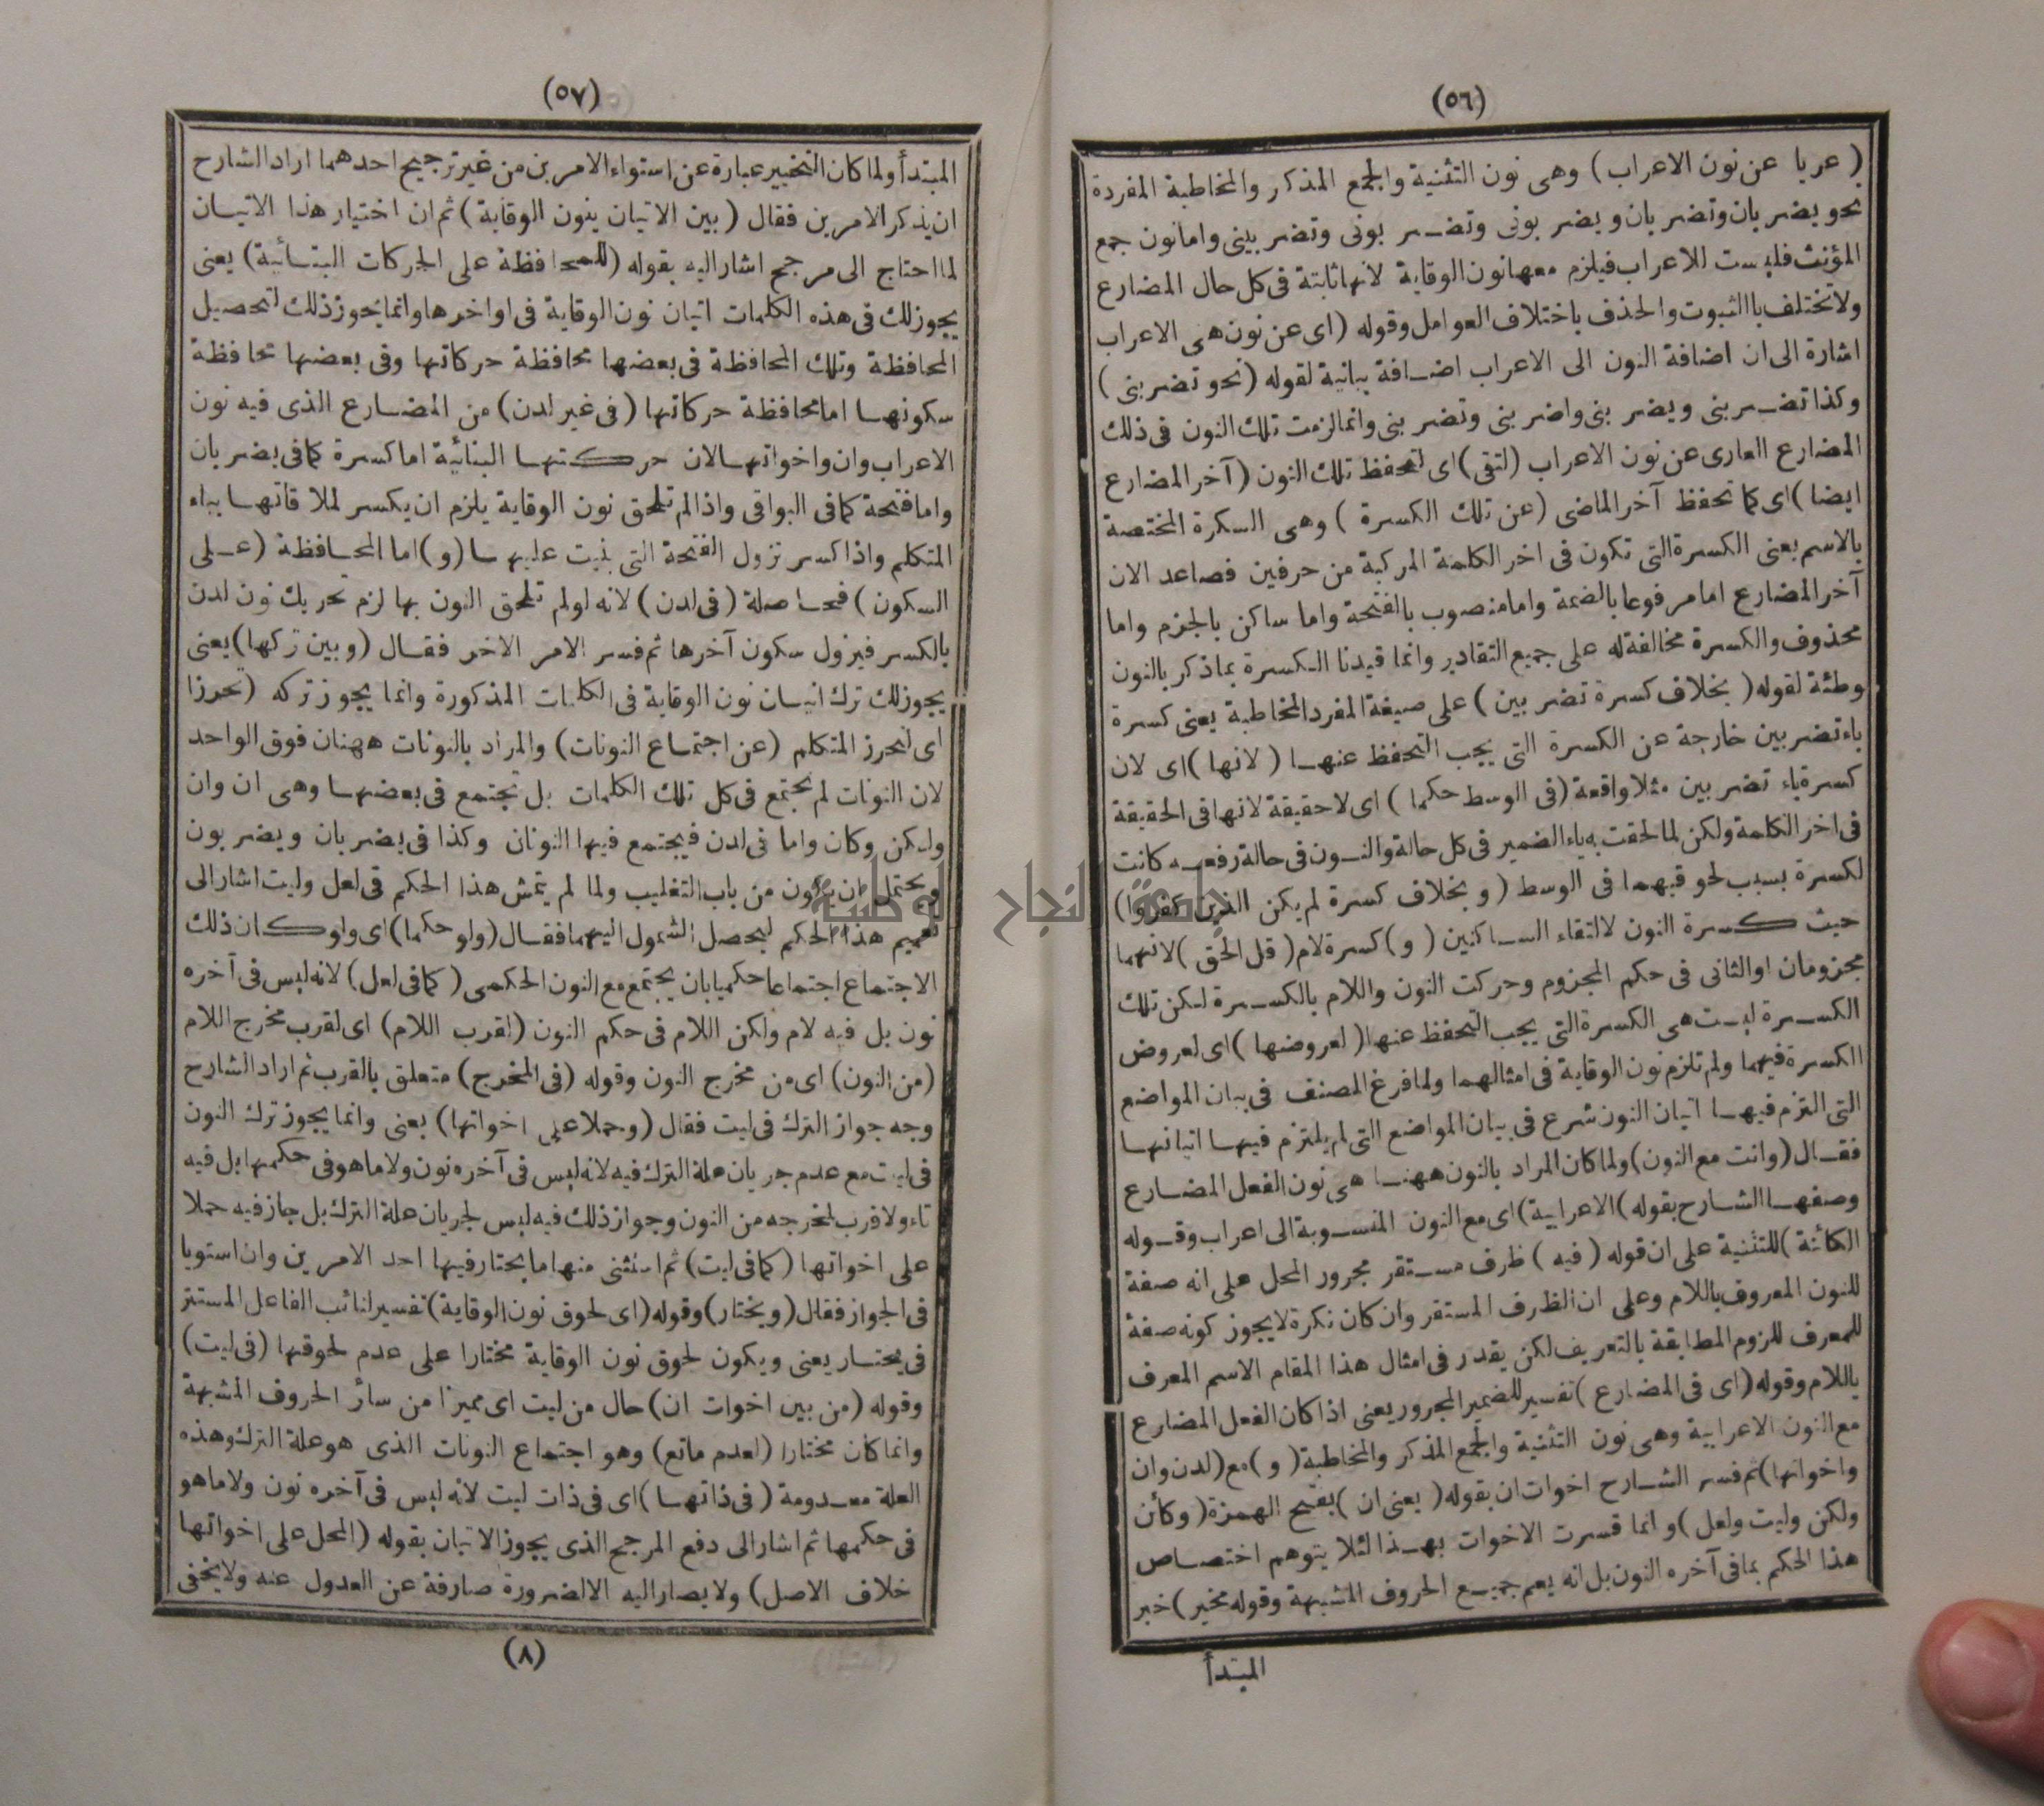 (٥٦)
( عريا عن نون الاعراب ) وهى نون التثنية والجمع المذكر والمخاطبة المفردة
نحو يضربان وتضربان ويضربونى وتضربونى وتضربينى واما نون جمع
المؤنث فليست للاعراب فيلزم معها نون الوقاية لانها ثابتة فى كل حال المضارع
ولا تختلف باالثبوت والحذف باختلاف العوامل وقوله (اى عن نون هى الاعراب
اشارة الى ان اضافة النون الى الاعراب اضافة بيانية لقوله (نحو تضربنى )
وكذا تضربنى ويضربنى واضربنى وتضربنى وانما لزمت تلك النون فى ذلك
المضارع العارى عن نون الاعراب (لتقى) اى لتحفظ تلك النون (آخر المضارع
ايضا) اى كما تحفظ آخر الماضى (عن تلك الكسرة ) وهى السكرة المختصة
بالاسم يعنى الكسرة التى تكون فى اخر الكلمة المركبة من حرفين فصاعد الان
آخر المضارع اما مرفوعا بالضمة واما منصوب باالفتحة واما ساكن بالجزم واما
محذوف والكسرة مخالفة له على جميع التقادير وانما قيدنا الكسرة بما ذكر بالنون
وطئة لقوله ( بخلاف كسرة تضربين ) على صيغة المفرد المخاطبة يعنى كسرة
باء تضربين خارجة عن الكسرة التى يجب التحفظ عنها ( لانها ) اى لان
كسرة باء تضربين مثلا واقعة (فى الوسط حكما ) اى لا حقيقة لانها فى الحقيقة
فى اخر الكلمة ولكن لما لحقت به ياء الضمير فى كل حالة والنون فى حالة رفعه كانت
لكسرة بسبب لحوقيهما فى الوسط ( و بخلاف كسرة لم يكن الذين كفروا)
حيث كسرة النون لالتقاء الساكنين ( و ) كسرة لام ( قل الحق ) لانهما
مجزومان او الثانى فى حكم المجزوم وحركت النون واللام بالكسرة لكن تلك
الكسرة ليست هى الكسرة التى يجب التحفظ عنها ( لعروضها ) اى لعروض
الكسرة فيهما ولم تلزم نون الوقاية فى امثالهما ولما فرغ المصنف فى بيان المواضع
التى التزم فيها اتيان النون شرع فى بيان المواضع التى لم يلتزم فيها اتيانها
فقال (وانت مع النون) ولما كان المراد بالنون ههنا هى نون الفعل المضارع
وصفها الشارح بقوله ) الاعرابية ) اى مع النون المنسوبة الى اعراب وقوله
الكائنة ) للتثنية على ان قوله ( فيه ) ظرف مستقر مجرور المحل على انه صفة
للنون المعروف باللام وعلى ان الظرف المستقر وان كان نكرة لا يجوز كونه صفة
للمعرف للزوم المطابقة بالتعريف لكن يقدر فى امثال هذا المقام الاسم المعرف
باللام وقوله (اى فى المضارع ) تفسير للضمير المجرور يعنى اذا كان الفعل المضارع
مع النون الاعرابية وهى نون التثنية والجمع المذكر والمخاطبة ( و ) مع ( لدن وان
واخواتها) ثم فسر الشارح اخوات ان بقوله ( يعنى ان ) بفتح الهمزة ( وكأن
ولكن وليت ولعل ) و انما فسرت الاخوات بهذا لئلا يتوهم اختصاص
هذا الحكم بما فى آخره النون بل انه يعم جميع الحروف المشبهة وقوله مخير ) خبر
المبتدأ
(٥٧)
المبتدأ ولما كان التخيير عبارة عن استواء الامرين من غير ترجيح احدهما اراد الشارح
ان يذكر الامرين فقال ( بين الاتيان بنون الوقاية ) ثم ان اختيار هذا الاتيان
لما احتاج الى مرجح اشار اليه بقوله (للمحافظة على الحركات البنائية) يعنى
يجوز لك فى هذه الكلمات اتيان نون الوقاية فى اواخرها وانما يجوز ذلك لتحصيل
المحافظة وتلك المحافظة فى بعضها محافظة حركاتها وفى بعضها محافظة
سكونها اما محافظة حركاتها (فى غير لدن) من المضارع الذى فيه نون
الاعراب وان واخواتها لان حركتها البنائية اما كسرة كما فى يضربان
واما فتحة كما فى البواقى واذا لم تلحق نون الوقاية يلزم ان يكسر لملاقاتها بياء
المتكلم واذا كسر تزول الفتحة التى بنيت عليها (و) اما المحافظة (على
السكون) فحاصلة (فى لدن) لانه لو لم تلحق النون بها لزم تحريك نون لدن
بالكسر فيزول سكون آخرها ثم فسر الامر الاخر فقال (وبين تركها) يعنى
يجوز لك ترك اتيان نون الوقاية فى الكلمات المذكورة وانما يجوز تركه (تحرزا
اى لتحرز المتكلم (عن اجتماع النونات) والمراد بالنونات ههنا ن فوق الواحد
لان النونات لم تجتمع فى كل تلك الكلمات بل تجتمع فى بعضها وهى ان وان
ولكن وكان واما فى لدن فيجتمع فيها النونان وكذا فى يضربان ويضربون
ويحتمل ان يكون من باب التغليب ولما لم يتمش هذا الحكم فى لعل وليت اشار الى
تعميم هذا الحكم ليحصل الشمول اليهما فقال (ولو حكما) اى ولو كان ذلك
الاجتماع اجتماعا حكميا بان يجتمع مع النون الحكمى (كما فى لعل) لانه ليس فى آخره
نون بل فيه لام ولكن اللام فى حكم النون (لقرب اللام) اى لقرب مخرج اللام
(من النون) اى من مخرج النون وقوله (فى المخرج) متعلق بالقرب ثم اراد الشارح
وجه جواز الترك فى ليت فقال (وحملا على اخواتها) يعنى وانما يجوز ترك النون
فى ليت مع عدم جريان علة الترك فيه لانه ليس فى آخره نون ولا ما هو فى حكمها بل فيه
تاء ولا قرب لمخرجه من النون وجواز ذلك فيه ليس لجريان علة الترك بل جاز فيه حملا
على اخواتها (كما فى ليت) ثم استثنى منها ما يختار فيها احد الامرين وان استويا
فى الجواز فقال (ويختار) وقوله (اى لحوق نون الوقاية) تفسير لنائب الفاعل المستتر
فى يختار يعنى ويكون لحوق نون الوقاية مختارا على عدم لحوقها (فى ليت)
وقوله (من بين اخوات ان) حال من ليت اى مميزا من سائر الحروف المشبهة
وانما كان مختارا (لعدم مانع) وهو اجتماع النونات الذى هو علة الترك وهذه
العلة معدومة ( فى ذاتها ) اى فى ذات ليت لانه ليس فى آخره نون ولا ما هو
فى حكمها ثم اشار الى دفع المرجح الذى يجوز الاتيان بقوله (المحل على اخواتها
خلاف الاصل) ولا يصار اليه الا لضرورة صارفة عن العدول عنه ولا يخفى
(٨)
جامعة النجاح الوطنية